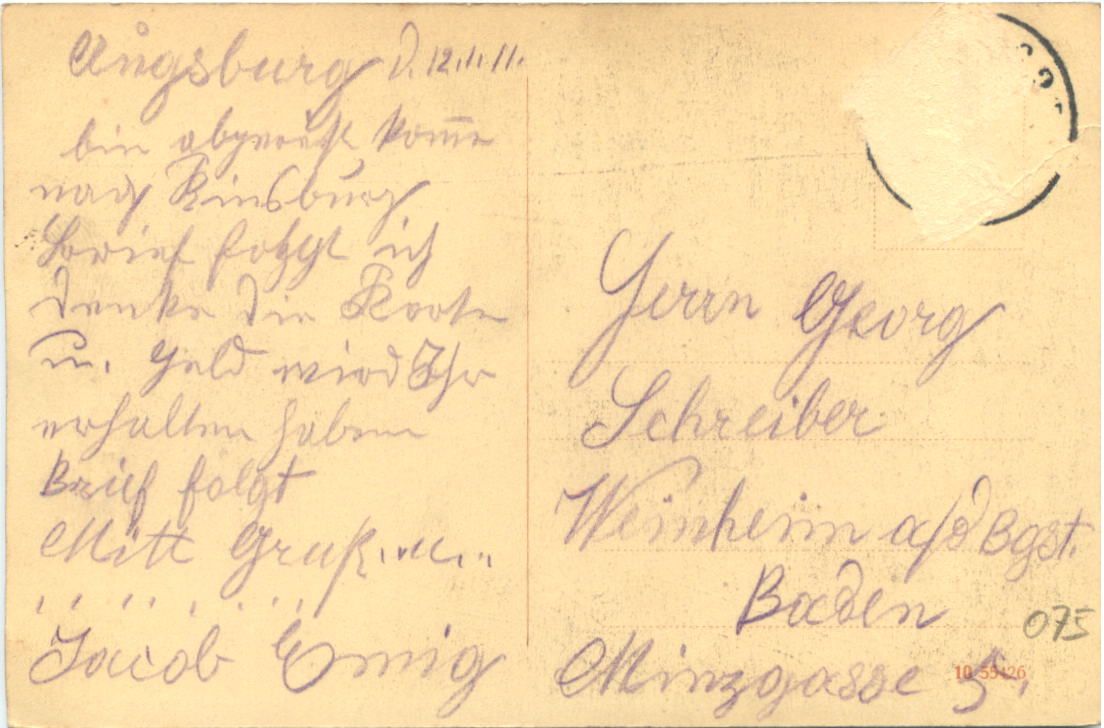 Augsburg d. 12.1.11.
bin abgereist komme
nach Kinsburg
Brief folgt ich
denke die Karte
u. Geld wird Ihr
erhalten haben
Brief folgt
Mitt Gruß
Jacob Emig
Herrn Georg
Schreiber
Weinheim a/d Bgst.
Baden
Minzgasse 5.
075
10 55426